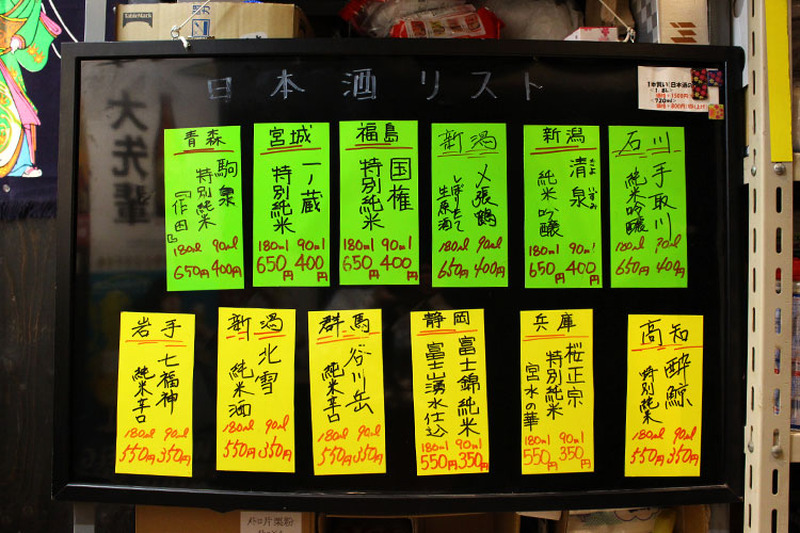 日本酒リスト
大先輩
青森
駒泉
特別純米
「作田」
180ml 90ml
650円 400円
宮城
一ノ蔵
特別純米
180ml 90ml
650円 400円
福島
国権
特別純米
180ml 90ml
650円 400円
新潟
〆張鶴
しぼりたて
生原酒
180ml 90ml
650円 400円
新潟
清泉
きよ いずみ
純米吟醸
180ml 90ml
650円 400円
石川
手取川
純米吟醸
180ml 90ml
650円 400円
岩手
七福神
純米辛口
180ml 90ml
550円 350円
新潟
北雪
純米酒
180ml 90ml
550円 350円
群馬
谷川岳
純米辛口
180ml 90ml
550円 350円
静岡
富士錦純米
富士山湧水仕込
180ml 90ml
550円 350円
兵庫
桜正宗
特別純米
宮水の華
180ml 90ml
550円 350円
高知
酔鯨
特別純米
180ml 90ml
550円 350円